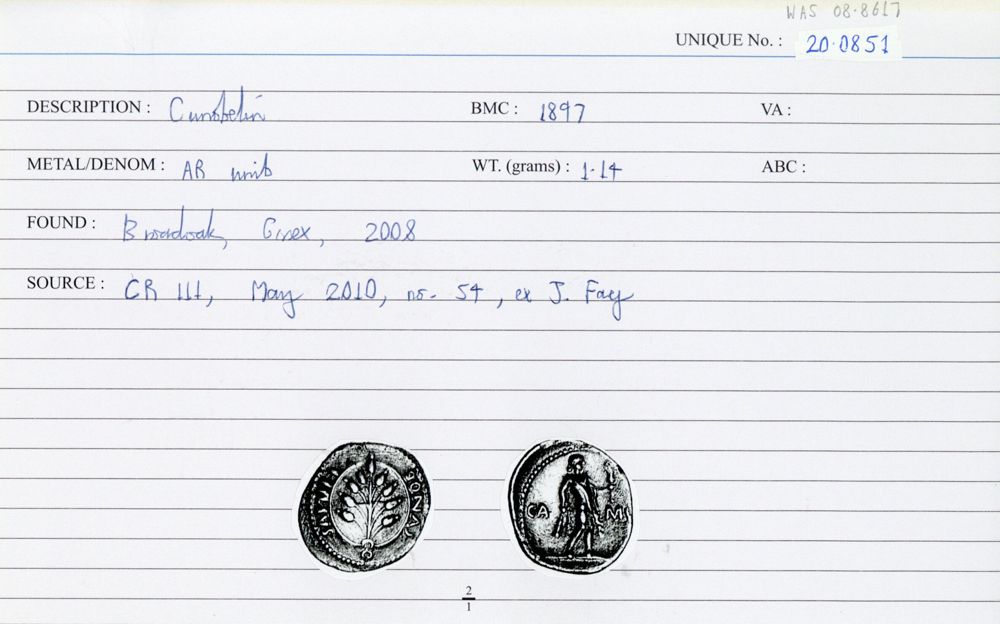 WAS 08·8617
UNIQUE No. : 20·0851
DESCRIPTION : Cunobelin BMC : 1897 VA :
METAL/DENOM : AR unit WT. (grams) : 1·14 ABC :
FOUND : Broadoak, Essex, 2008
SOURCE : CR 111, May 2010, no. 54, ex J. Fay
CA M
2
1